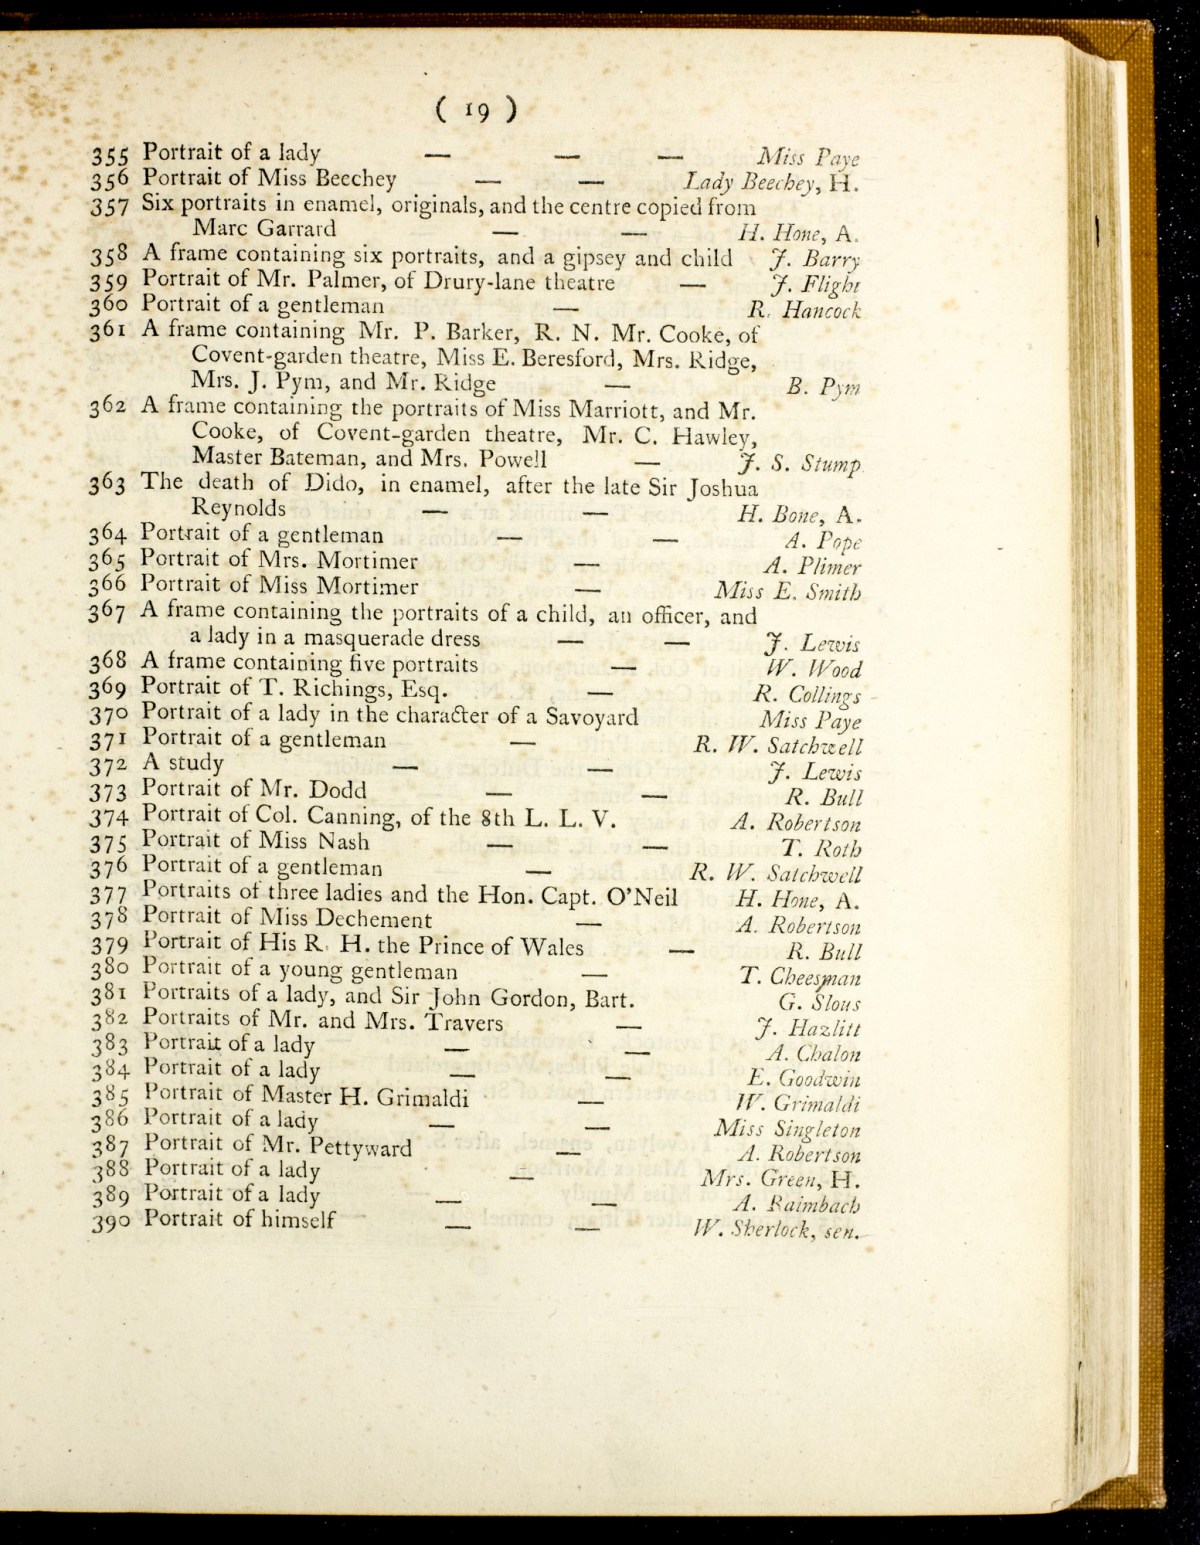 ( 19 )
355 Portrait of a lady — — — Miss Paye
356 Portrait of Miss Beechey — — Lady Beechey, H.
357 Six portraits in enamel, originals, and the centre copied from
Marc Garrard — — H. Hone, A.
358 A frame containing six portraits, and a gipsey and child J. Barry
359 Portrait of Mr. Palmer, of Drury-lane theatre — J. Flight
360 Portrait of a gentleman — R. Hancock
361 A frame containing Mr. P. Barker, R. N. Mr. Cooke, of
Covent-garden theatre, Miss E. Beresford, Mrs. Ridge,
Mrs. J. Pym, and Mr. Ridge — B. Pym
362 A frame containing the portraits of Miss Marriott, and Mr.
Cooke, of Covent-garden theatre, Mr. C. Hawley,
Master Bateman, and Mrs. Powell — J. S. Stump
363 The death of Dido, in enamel, after the late Sir Joshua
Reynolds — — H. Bone, A.
364 Portrait of a gentleman — — A. Pope
365 Portrait of Mrs. Mortimer — A. Plimer
366 Portrait of Miss Mortimer — Miss E. Smith
367 A frame containing the portraits of a child, an officer, and
a lady in a masquerade dress — — J. Lewis
368 A frame containing five portraits — W. Wood
369 Portrait of T. Richings, Esq. — R. Collings
370 Portrait of a lady in the character of a Savoyard Miss Paye
371 Portrait of a gentleman — R. W. Satchwell
372 A study — — J. Lewis
373 Portrait of Mr. Dodd — — R. Bull
374 Portrait of Col. Canning, of the 8th L. L. V. A. Robertson
375 Portrait of Miss Nash — — T. Roth
376 Portrait of a gentleman — R. W. Satchwell
377 Portraits of three ladies and the Hon. Capt. O'Neil H. Hone, A.
378 Portrait of Miss Dechement — A. Robertson
379 Portrait of His R. H. the Prince of Wales — R. Bull
380 Portrait of a young gentleman — T. Cheesman
381 Portraits of a lady, and Sir John Gordon, Bart. G. Slous
382 Portraits of Mr. and Mrs. Travers — J. Hazlitt
383 Portrait of a lady — — A. Chalon
384 Portrait of a lady — — E. Goodwin
385 Portrait of Master H. Grimaldi — W. Grimaldi
386 Portrait of a lady — — Miss Singleton
387 Portrait of Mr. Pettyward — A. Robertson
388 Portrait of a lady — Mrs. Green, H.
389 Portrait of a lady — — A. Raimbach
390 Portrait of himself — — W. Sherlock, sen.